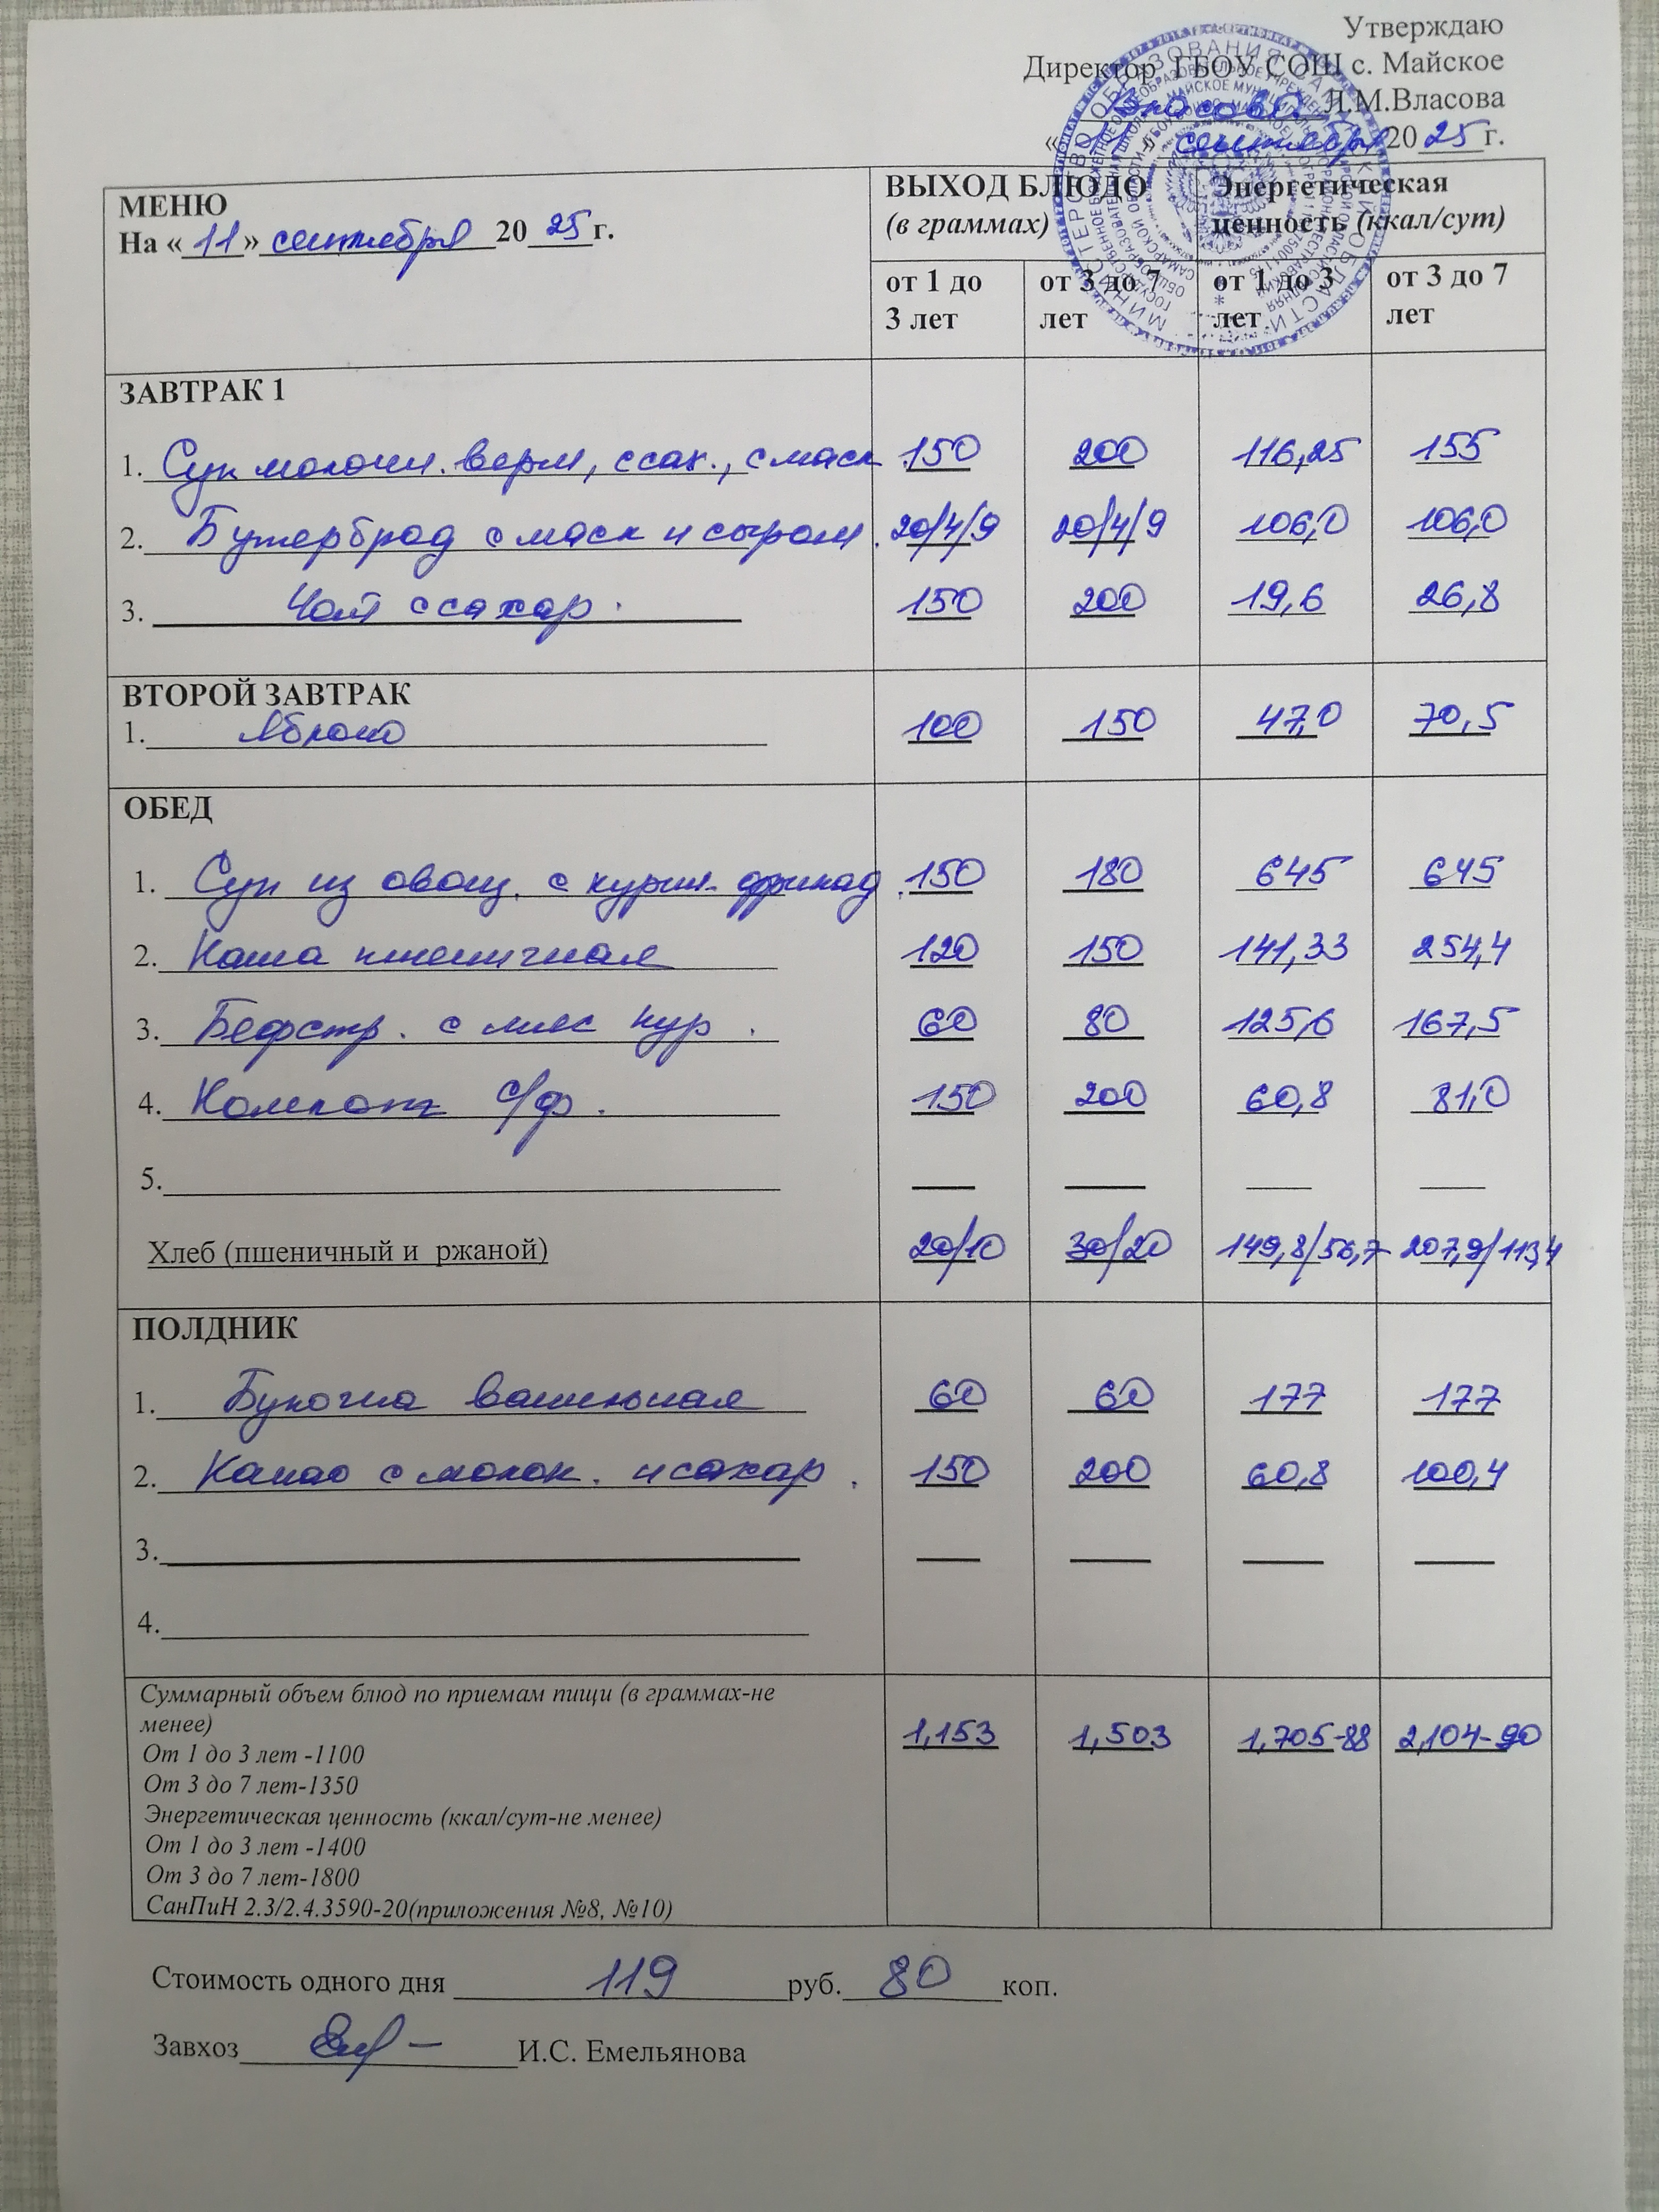 Утверждаю
Директор ГБОУ СОШ с. Майское
Власова Л.М.Власова
« 11 » сентября 2025 г.
МЕНЮ
На « 11 » сентября 20 25 г.
ВЫХОД БЛЮДО (в граммах)
Энергетическая ценность (ккал/сут)
от 1 до 3 лет от 3 до 7 лет от 1 до 3 лет от 3 до 7 лет
ЗАВТРАК 1
1. Суп молочн. верм, с сах., с масл. 150 200 116,25 155
2. Бутерброд с масл и сыром. 20/4/9 20/4/9 106,0 106,0
3. Чай с сахар. 150 200 19,6 26,8
ВТОРОЙ ЗАВТРАК
1. Яблоко 100 150 47,0 70,5
ОБЕД
1. Суп из овощ. с курин. фрикад. 150 180 645 645
2. Каша пшеничная 120 150 141,33 254,4
3. Бефстр. с мяс кур. 60 80 125,6 167,5
4. Компот с/ф. 150 200 60,8 81,0
5.
Хлеб (пшеничный и ржаной) 20/10 30/20 149,8/56,7 207,9/113,4
ПОЛДНИК
1. Булочка ванильная 60 60 177 177
2. Какао с молок. и сахар. 150 200 60,8 100,4
3.
4.
Суммарный объем блюд по приемам пищи (в граммах-не
менее) 1,153 1,503 1,705-88 2,104-90
От 1 до 3 лет -1100
От 3 до 7 лет-1350
Энергетическая ценность (ккал/сут-не менее)
От 1 до 3 лет -1400
От 3 до 7 лет-1800
СанПиН 2.3/2.4.3590-20(приложения №8, №10)
Стоимость одного дня 119 руб. 80 коп.
Завхоз И.С. Емельянова